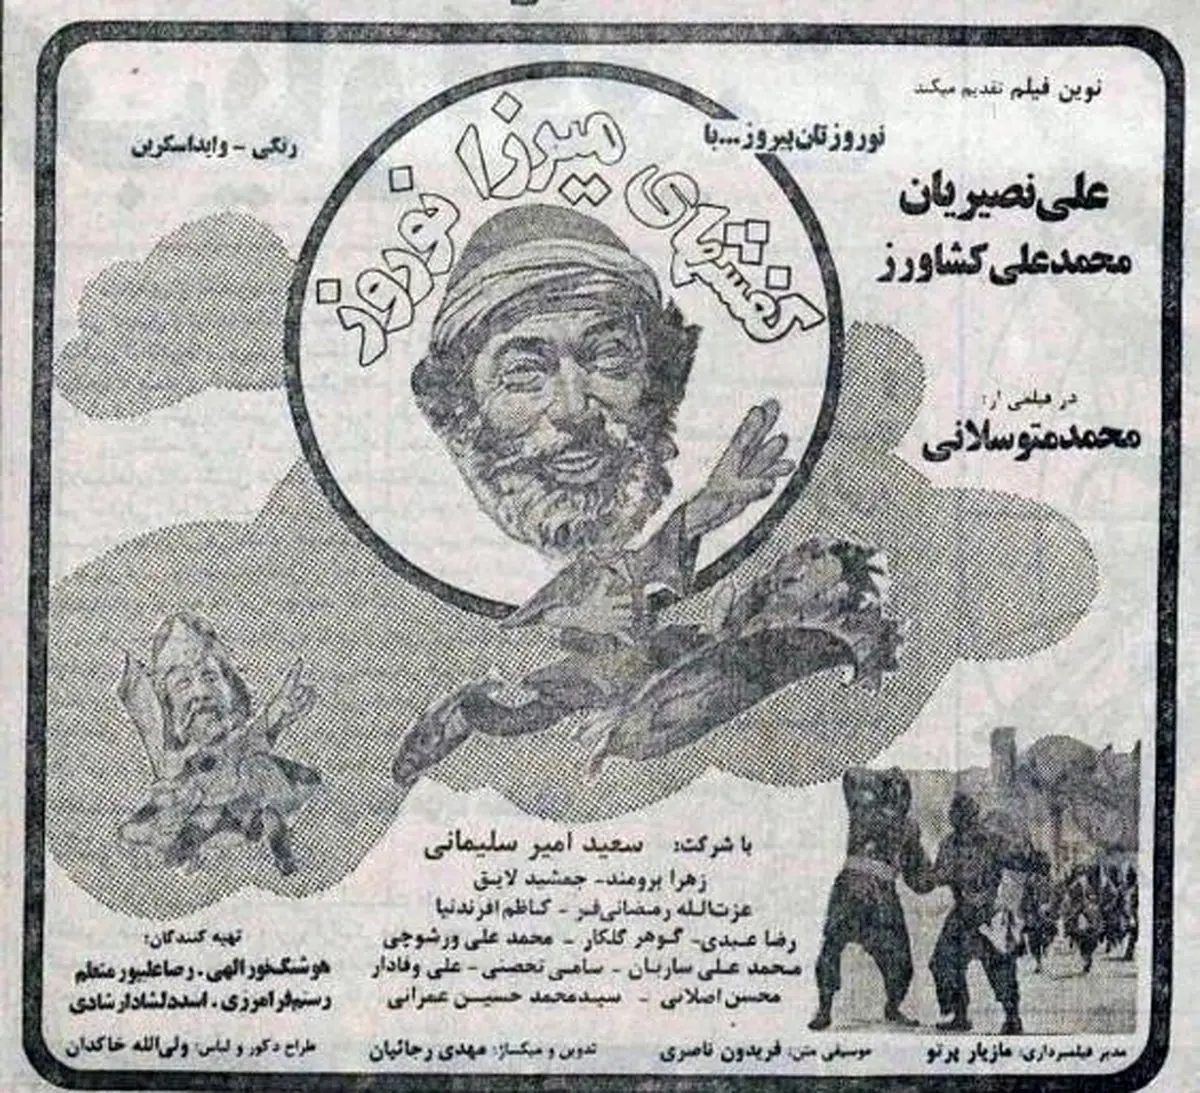 نوین فیلم تقدیم میکند
نوروزتان پیروز...با
رنگی - وایداسکرین
کفشهای میرزا نوروز
علی نصیریان
محمدعلی کشاورز
در فیلمی از:
محمدمتوسلانی
با شرکت: سعید امیر سلیمانی
زهرا برومند- جمشید لایق
عزت‌الله رمضانی‌فر - کاظم افرندنیا
رضا عبدی- گوهر گلکار - محمد علی ورشوچی
محمد علی ساربان - سامی تحصنی - علی وفادار
محسن اصلانی - سیدمحمد حسین عمرانی
تهیه کنندگان:
هوشنگ نورالهی . رضاعلیپور متعلم
رستم فرامرزی . اسددلشادارشادی
مدیر فیلمبرداری: مازیار پرتو
موسیقی متن: فریدون ناصری
تدوین و میکساژ: مهدی رجائیان
طراح دکور و لباس: ولی‌الله خاکدان